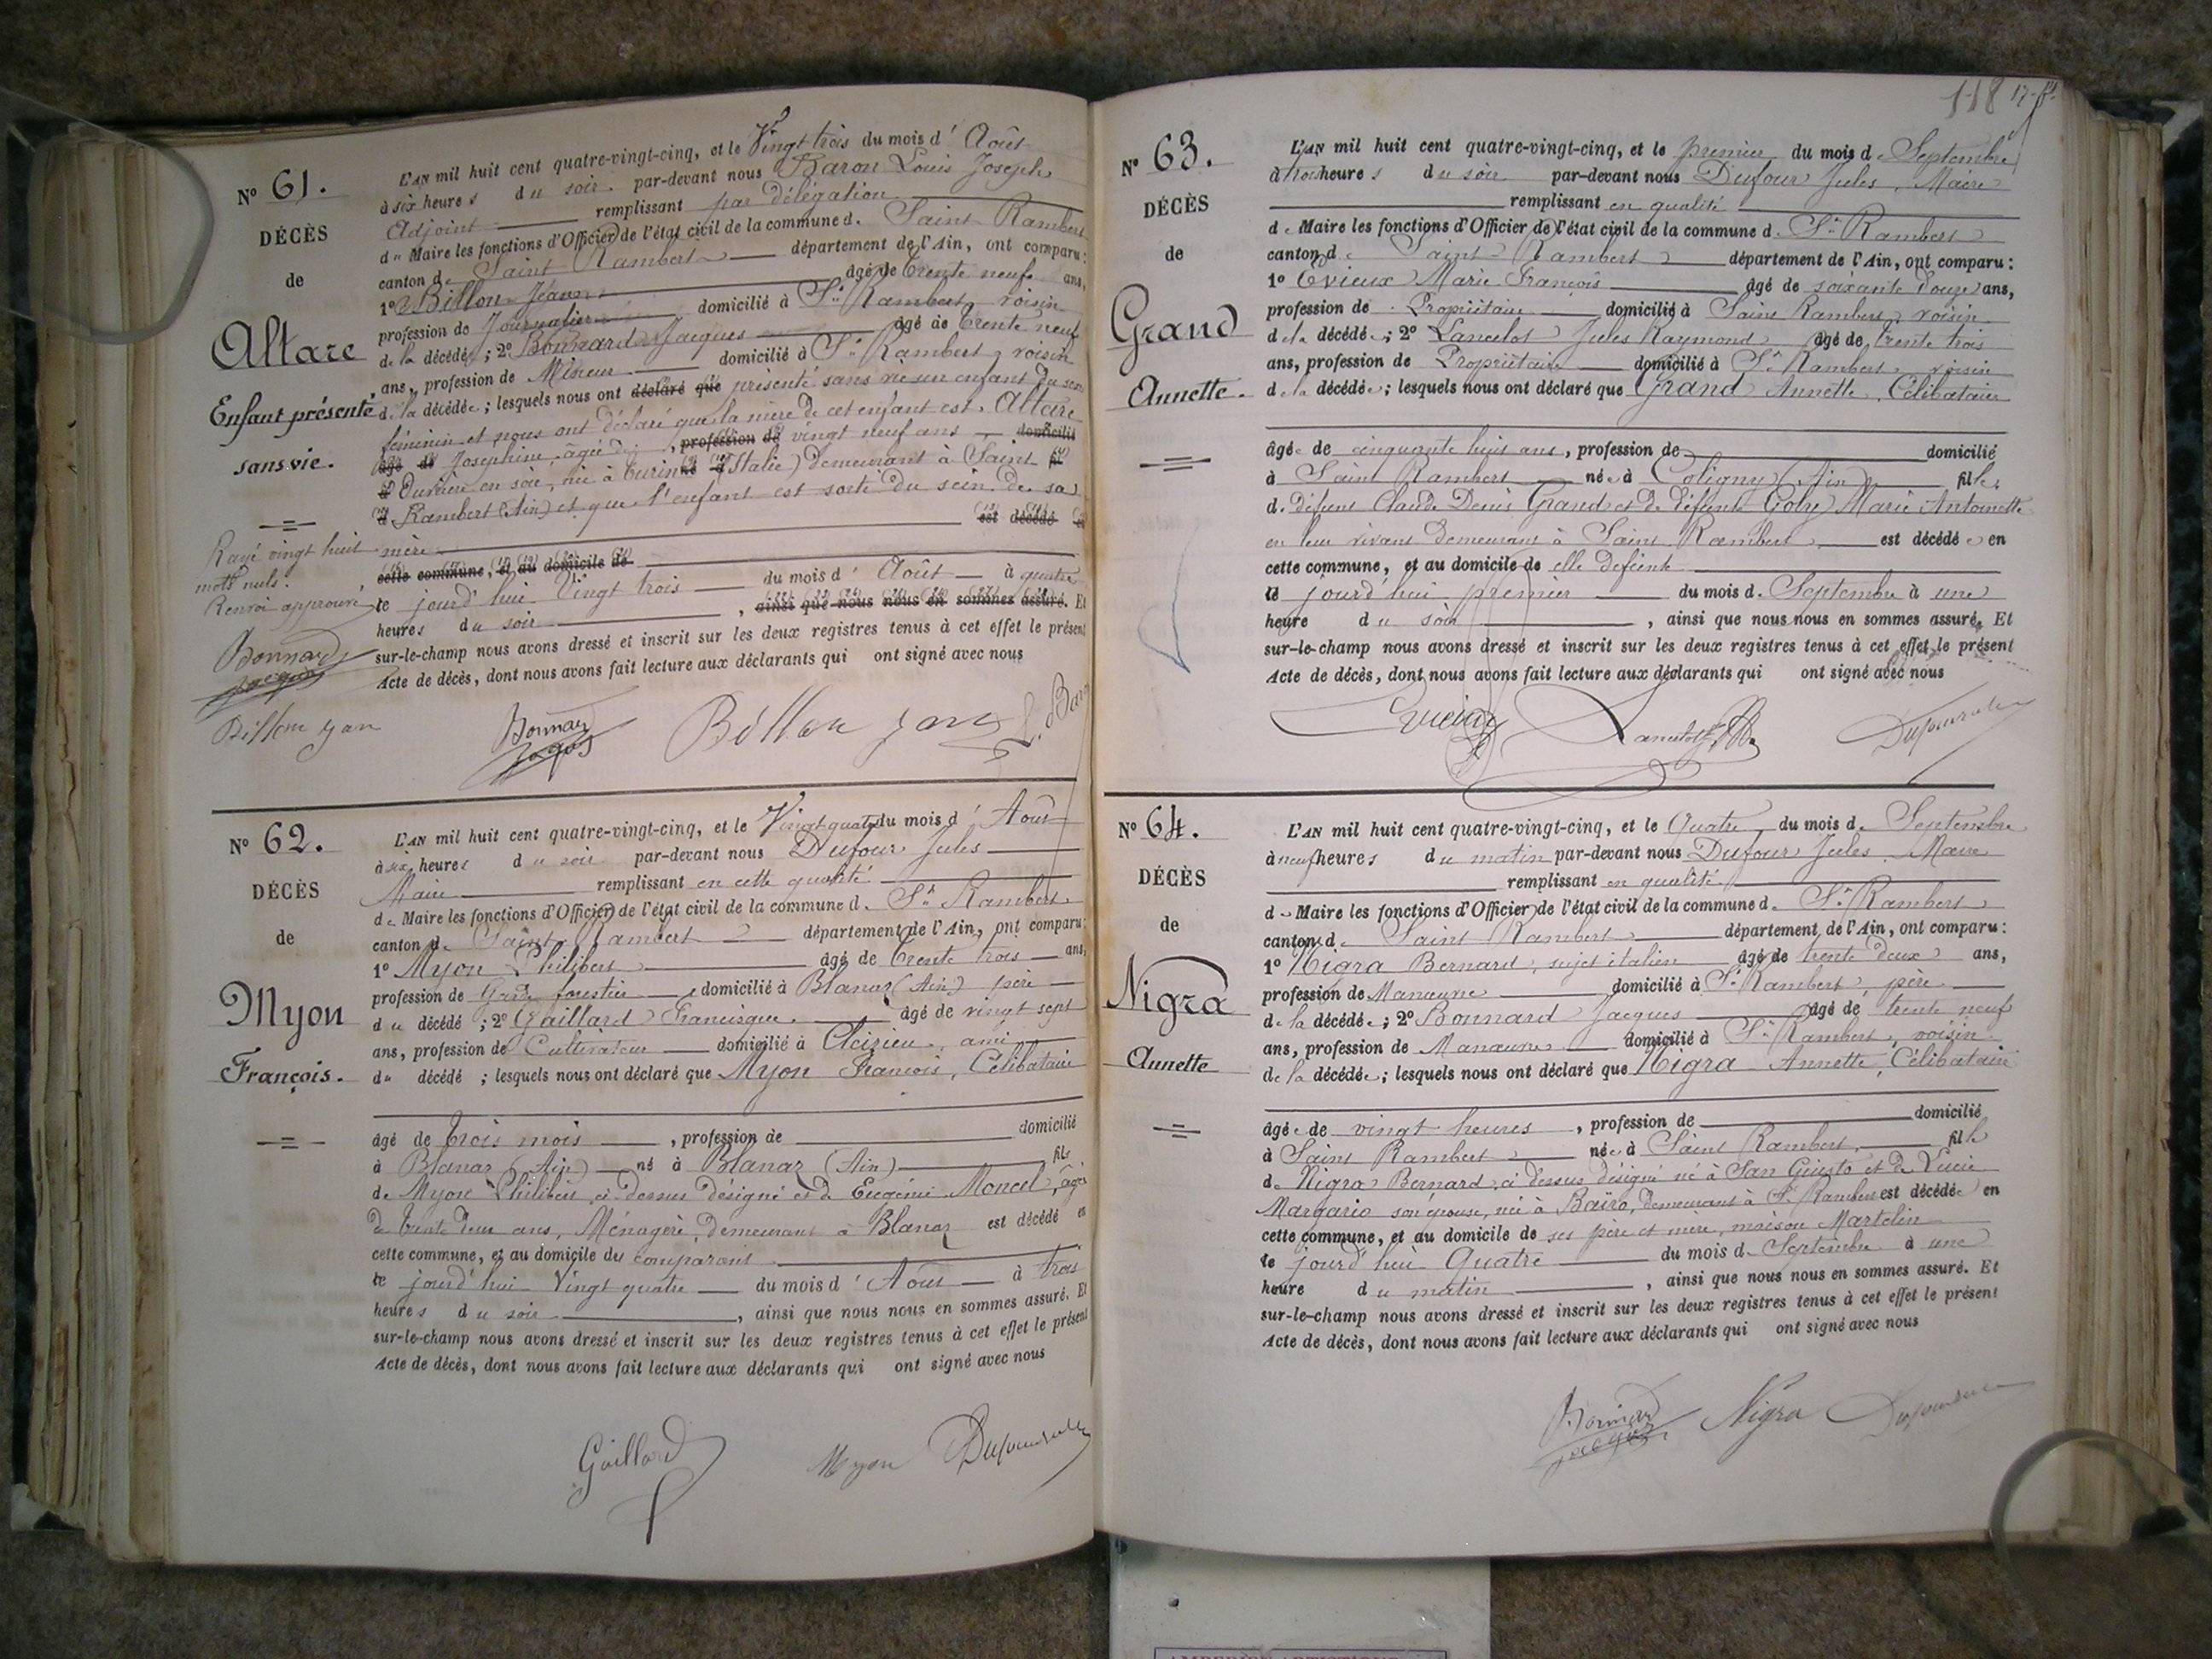 N° 61.
DÉCÈS
de
Altare
Enfant présenté
sans vie.
Rayé vingt huit
mots nuls.
Renvoi approuvé
Bonnard
Jacques
Billon Jan
L'AN mil huit cent quatre-vingt-cinq, et le Vingt trois du mois d' Août
à six heures du soir par-devant nous Baron Louis Joseph
Adjoint remplissant par délégation
du Maire les fonctions d'Officier de l'état civil de la commune de Saint Rambert
canton de Saint Rambert département de l'Ain, ont comparu:
1° Billon Jean âgé de trente neuf ans,
profession de Journalier domicilié à St Rambert, voisin
de la décédée; 2° Bonnard Jacques âgé de trente neuf
ans, profession de Mineur domicilié à St Rambert, voisin
de la décédée; lesquels nous ont déclaré que présenté sans vie un enfant du sexe
féminin et nous ont déclaré que la mère de cet enfant est Altare
âgé de Josephine, âgée de, profession de vingt neuf ans domicilié
à Ouvrière en soie, née à Turin (Italie) demeurant à Saint
d Rambert (Ain) et que l'enfant est sorti du sein de sa
mère est décédé en
cette commune, et au domicile de
le jourd'hui Vingt trois du mois d' Août à quatre
heures du soir, ainsi que nous nous en sommes assuré. Et
sur-le-champ nous avons dressé et inscrit sur les deux registres tenus à cet effet le présent
Acte de décès, dont nous avons fait lecture aux déclarants qui ont signé avec nous
Bonnard
Jacques
Billon Jan
L. Bar
N° 62.
DÉCÈS
de
Myon
François.
L'AN mil huit cent quatre-vingt-cinq, et le Vingt quatre du mois d' Août
à six heures du soir par-devant nous Dufour Jules
Maire remplissant en cette qualité
de Maire les fonctions d'Officier de l'état civil de la commune de St Rambert
canton de Saint Rambert département de l'Ain, ont comparu:
1° Myon Philibert âgé de trente trois ans,
profession de Garde forestier domicilié à Blanaz (Ain) père
du décédé; 2° Gaillard Francisque âgé de vingt sept
ans, profession de Cultivateur domicilié à Cleizieu, ami
du décédé; lesquels nous ont déclaré que Myon François, Célibataire
âgé de trois mois, profession de domicilié
à Blanaz (Ain) né à Blanaz (Ain) fils
de Myon Philibert ci-dessus désigné et de Eugénie Moncel, âgée
de trente deux ans, Ménagère, demeurant à Blanaz est décédé en
cette commune, et au domicile du comparant
le jourd'hui Vingt quatre du mois d' Août à trois
heures du soir, ainsi que nous nous en sommes assuré. Et
sur-le-champ nous avons dressé et inscrit sur les deux registres tenus à cet effet le présent
Acte de décès, dont nous avons fait lecture aux déclarants qui ont signé avec nous
Gaillard
Myon
Dufour Jules
118
N° 63.
DÉCÈS
de
Grand
Annette.
L'AN mil huit cent quatre-vingt-cinq, et le premier du mois de Septembre
à trois heures du soir par-devant nous Dufour Jules, Maire
remplissant en qualité
de Maire les fonctions d'Officier de l'état civil de la commune de St Rambert
canton de Saint-Rambert département de l'Ain, ont comparu:
1° Evieux Marie François âgé de soixante douze ans,
profession de Propriétaire domicilié à Saint Rambert, voisin
de la décédée; 2° Lancelot Jules Raymond âgé de trente trois
ans, profession de Propriétaire domicilié à St Rambert, voisin
de la décédée; lesquels nous ont déclaré que Grand Annette, Célibataire
âgée de cinquante huit ans, profession de domicilié
à Saint Rambert née à Coligny (Ain) fille
de défunt Claude Denis Grand et de défunte Goly Marie Antoinette
en leur vivant demeurant à Saint Rambert est décédée en
cette commune, et au domicile de elle défunte
le jourd'hui premier du mois de Septembre à une
heure du soir, ainsi que nous nous en sommes assuré. Et
sur-le-champ nous avons dressé et inscrit sur les deux registres tenus à cet effet le présent
Acte de décès, dont nous avons fait lecture aux déclarants qui ont signé avec nous
Evieux
Lancelot J. R.
Dufour Jules
N° 64.
DÉCÈS
de
Nigra
Annette
L'AN mil huit cent quatre-vingt-cinq, et le Quatre du mois de Septembre
à neuf heures du matin par-devant nous Dufour Jules, Maire
remplissant en qualité
de Maire les fonctions d'Officier de l'état civil de la commune de St Rambert
canton de Saint Rambert département de l'Ain, ont comparu:
1° Nigra Bernard, sujet italien âgé de trente deux ans,
profession de Manœuvre domicilié à St Rambert, père
de la décédée; 2° Bonnard Jacques âgé de trente neuf
ans, profession de Manœuvre domicilié à St Rambert, voisin
de la décédée; lesquels nous ont déclaré que Nigra Annette, Célibataire
âgée de vingt heures, profession de domicilié
à Saint Rambert née à Saint Rambert, fille
de Nigra Bernard ci dessus désigné né à San Giusto et de Lucie
Margario son épouse, née à Baïro, demeurant à St Rambert est décédée en
cette commune, et au domicile de ses père et mère, maison Martelin
le jourd'hui Quatre du mois de Septembre à une
heure du matin, ainsi que nous nous en sommes assuré. Et
sur-le-champ nous avons dressé et inscrit sur les deux registres tenus à cet effet le présent
Acte de décès, dont nous avons fait lecture aux déclarants qui ont signé avec nous
Bonnard
Jacques
Nigra
Dufour Jules